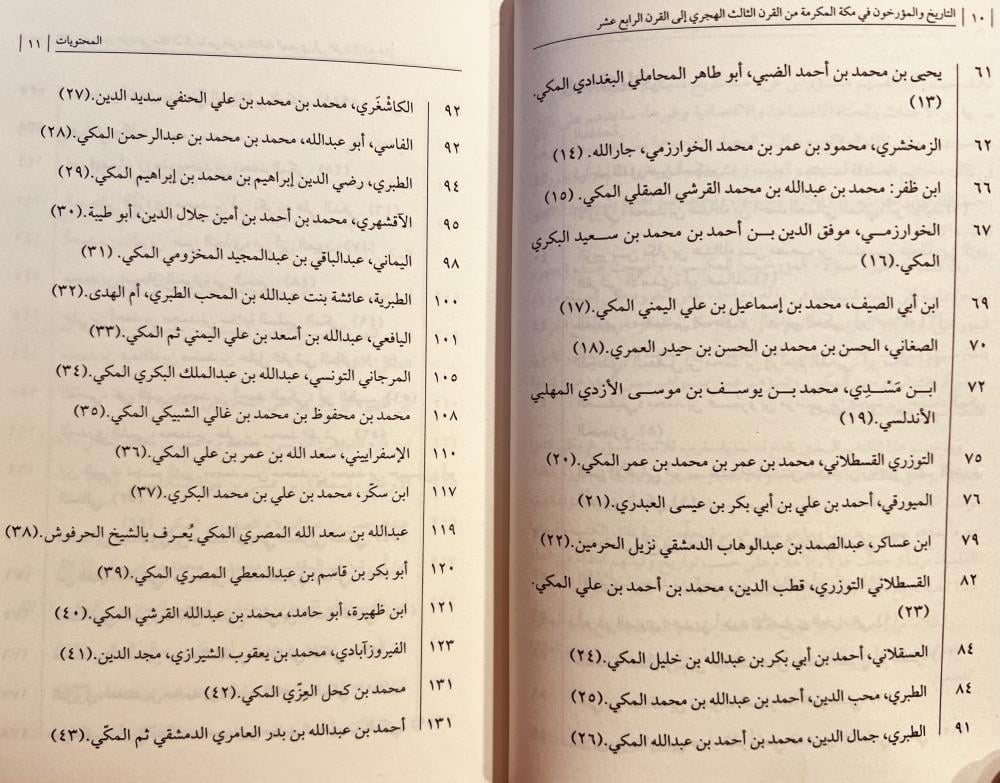 ١٠ | التاريخ والمؤرخون في مكة المكرمة من القرن الثالث الهجري إلى القرن الرابع عشر
٦١ يحيى بن محمد بن أحمد الضبي، أبو طاهر المحاملي البغدادي المكي.
(١٣)
٦٢ الزمخشري، محمود بن عمر بن محمد الخوارزمي، جارالله. (١٤)
٦٦ ابن ظفر: محمد بن عبدالله بن محمد القرشي الصقلي المكي. (١٥)
٦٧ الخوارزمي، موفق الدين بن أحمد بن محمد بن سعيد البكري
المكي.(١٦)
٦٩ ابن أبي الصيف، محمد بن إسماعيل بن علي اليمني المكي.(١٧)
٧٠ الصغاني، الحسن بن محمد بن الحسن بن حيدر العمري.(١٨)
٧٢ ابن مَسْدِي، محمد بن يوسف بن موسى الأزدي المهلبي
الأندلسي.(١٩)
٧٥ التوزري القسطلاني، محمد بن عمر بن محمد بن عمر المكي.(٢٠)
٧٦ الميورقي، أحمد بن علي بن أبي بكر بن عيسى العبدري.(٢١)
٧٩ ابن عساكر، عبدالصمد بن عبدالوهاب الدمشقي نزيل الحرمين.(٢٢)
٨٢ القسطلاني التوزري، قطب الدين، محمد بن أحمد بن علي المكي.
(٢٣)
٨٤ العسقلاني، أحمد بن أبي بكر بن عبدالله بن خليل المكي.(٢٤)
٨٤ الطبري، محب الدين، أحمد بن عبدالله بن محمد المكي.(٢٥)
٩١ الطبري، جمال الدين، محمد بن أحمد بن عبدالله المكي.(٢٦)
المحتويات | ١١ |
٩٢ الكاشْغَري، محمد بن محمد بن علي الحنفي سديد الدين.(٢٧)
٩٢ الفاسي، أبو عبدالله، محمد بن محمد بن عبدالرحمن المكي.(٢٨)
٩٤ الطبري، رضي الدين إبراهيم بن محمد بن إبراهيم المكي.(٢٩)
٩٥ الآقشهري، محمد بن أحمد بن أمين جلال الدين، أبو طيبة.(٣٠)
٩٨ اليماني، عبدالباقي بن عبدالمجيد المخزومي المكي. (٣١)
١٠٠ الطبرية، عائشة بنت عبدالله بن المحب الطبري، أم الهدى.(٣٢)
١٠١ اليافعي، عبدالله بن أسعد بن علي اليمني ثم المكي.(٣٣)
١٠٥ المرجاني التونسي، عبدالله بن عبدالملك البكري المكي.(٣٤)
١٠٨ محمد بن محفوظ بن محمد بن غالي الشبيكي المكي.(٣٥)
١١٠ الإسفراييني، سعد الله بن عمر بن علي المكي.(٣٦)
١١٧ ابن سكّر، محمد بن علي بن محمد البكري.(٣٧)
١١٩ عبدالله بن سعد الله المصري المكي يُعرف بالشيخ الحرفوش.(٣٨)
١٢٠ أبو بكر بن قاسم بن عبدالمعطي المصري المكي.(٣٩)
١٢١ ابن ظهيرة، أبو حامد، محمد بن عبدالله القرشي المكي.(٤٠)
١٢٣ الفيروزآبادي، محمد بن يعقوب الشيرازي، مجد الدين.(٤١)
١٣١ محمد بن كحل العِزّي المكي.(٤٢)
١٣١ أحمد بن عبدالله بن بدر العامري الدمشقي ثم المكّي.(٤٣)